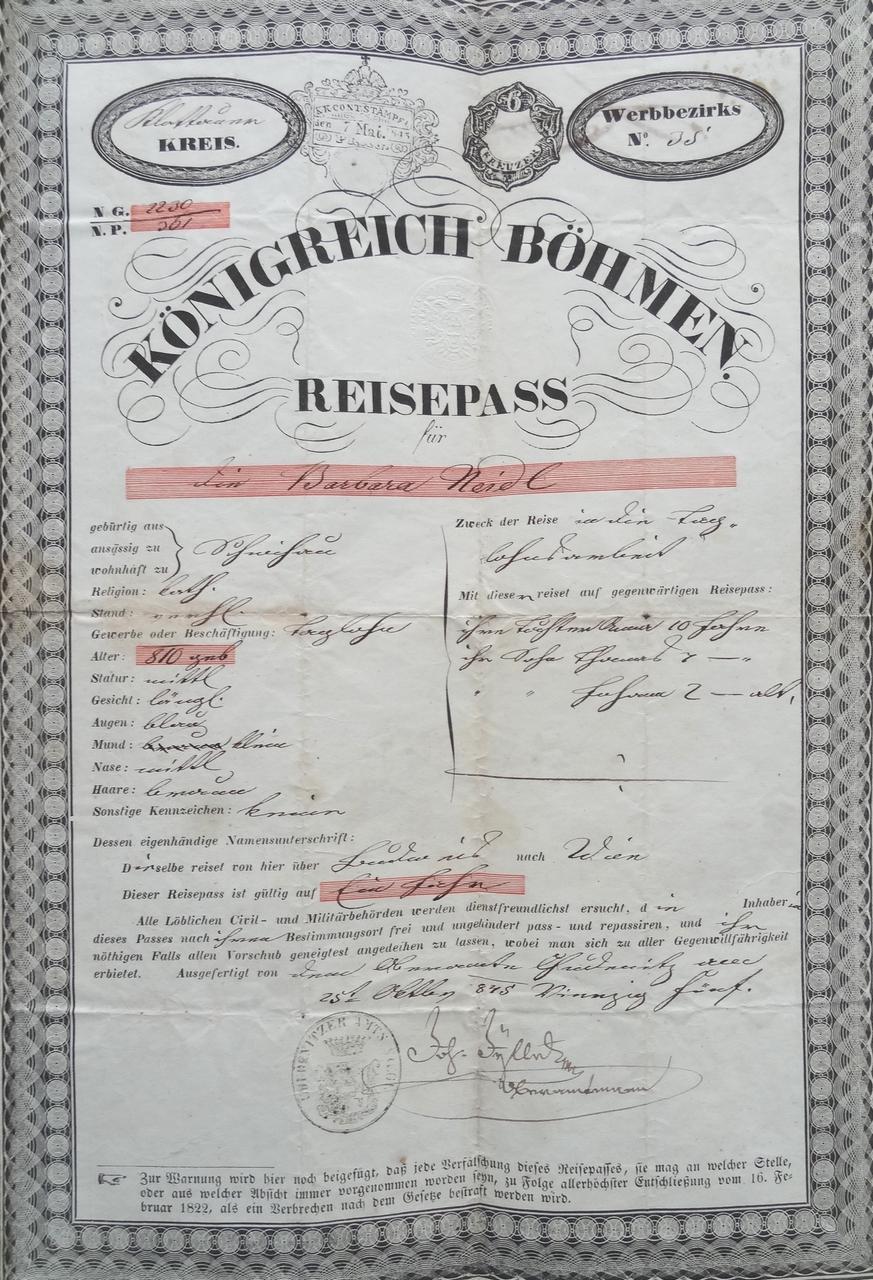 Klattauer
KREIS.
K.K. CONT. STÄMPEL
den 7 Mai. 845
6
KREUZER
Werbbezirks
No. 35
N G. 2230
N. P. 361
KÖNIGREICH BÖHMEN.
REISEPASS
für
die Barbara Neidl
gebürtig aus
ansässig zu
wohnhaft zu
Religion: kath.
Stand: verhl.
Gewerbe oder Beschäftigung: Taglohn
Alter: 810 geb
Statur: mittl
Gesicht: längl.
Augen: blau
Mund: klein
Nase: mittl
Haare: braun
Sonstige Kennzeichen: keine
Zweck der Reise in die Tag„
lohnsarbeit
Mit dieser reiset auf gegenwärtigen Reisepass:
ihre Tochter 10 Jahre
ihr Sohn Thomas 7 — „
" " Johann 2 — alt.
Dessen eigenhändige Namensunterschrift:
Dieselbe reiset von hier über Budweis nach Wien
Dieser Reisepass ist gültig auf Ein Jahr
Alle Löblichen Civil- und Militärbehörden werden dienstfreundlichst ersucht, d ie Inhaberin
dieses Passes nach ihrem Bestimmungsort frei und ungehindert pass- und repassiren, und ihr
nöthigen Falls allen Vorschub geneigtest angedeihen zu lassen, wobei man sich zu aller Gegenwillfährigkeit
erbietet. Ausgefertigt von dem Oberamte Chudenitz am
25t Oktbr 845 Vierzig Fünf.
CHUDENITZER AMTS
Joh.
Oberamtmann
Zur Warnung wird hier noch beigefügt, daß jede Verfälschung dieses Reisepasses, sie mag an welcher Stelle,
oder aus welcher Absicht immer vorgenommen worden seyn, zu Folge allerhöchster Entschließung vom 16. Fe-
bruar 1822, als ein Verbrechen nach dem Gesetze bestraft werden wird.